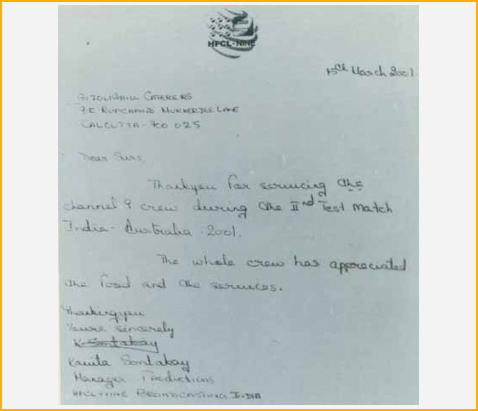 HFCL-NINE
15th March 2001
BIJOLIGRILL CATERERS
9E RUPCHAND MUKHERJEE LANE
CALCUTTA-700 025
Dear Sirs,
Thankyou for servicing the
channel 9 crew during the IInd Test Match
India-Australia 2001.
The whole crew has appreciated
the food and the services.
Thankingyou
Yours sincerely
K Sontakay
Kavita Sontakay
Manager Productions
HFCL-NINE BROADCASTING INDIA